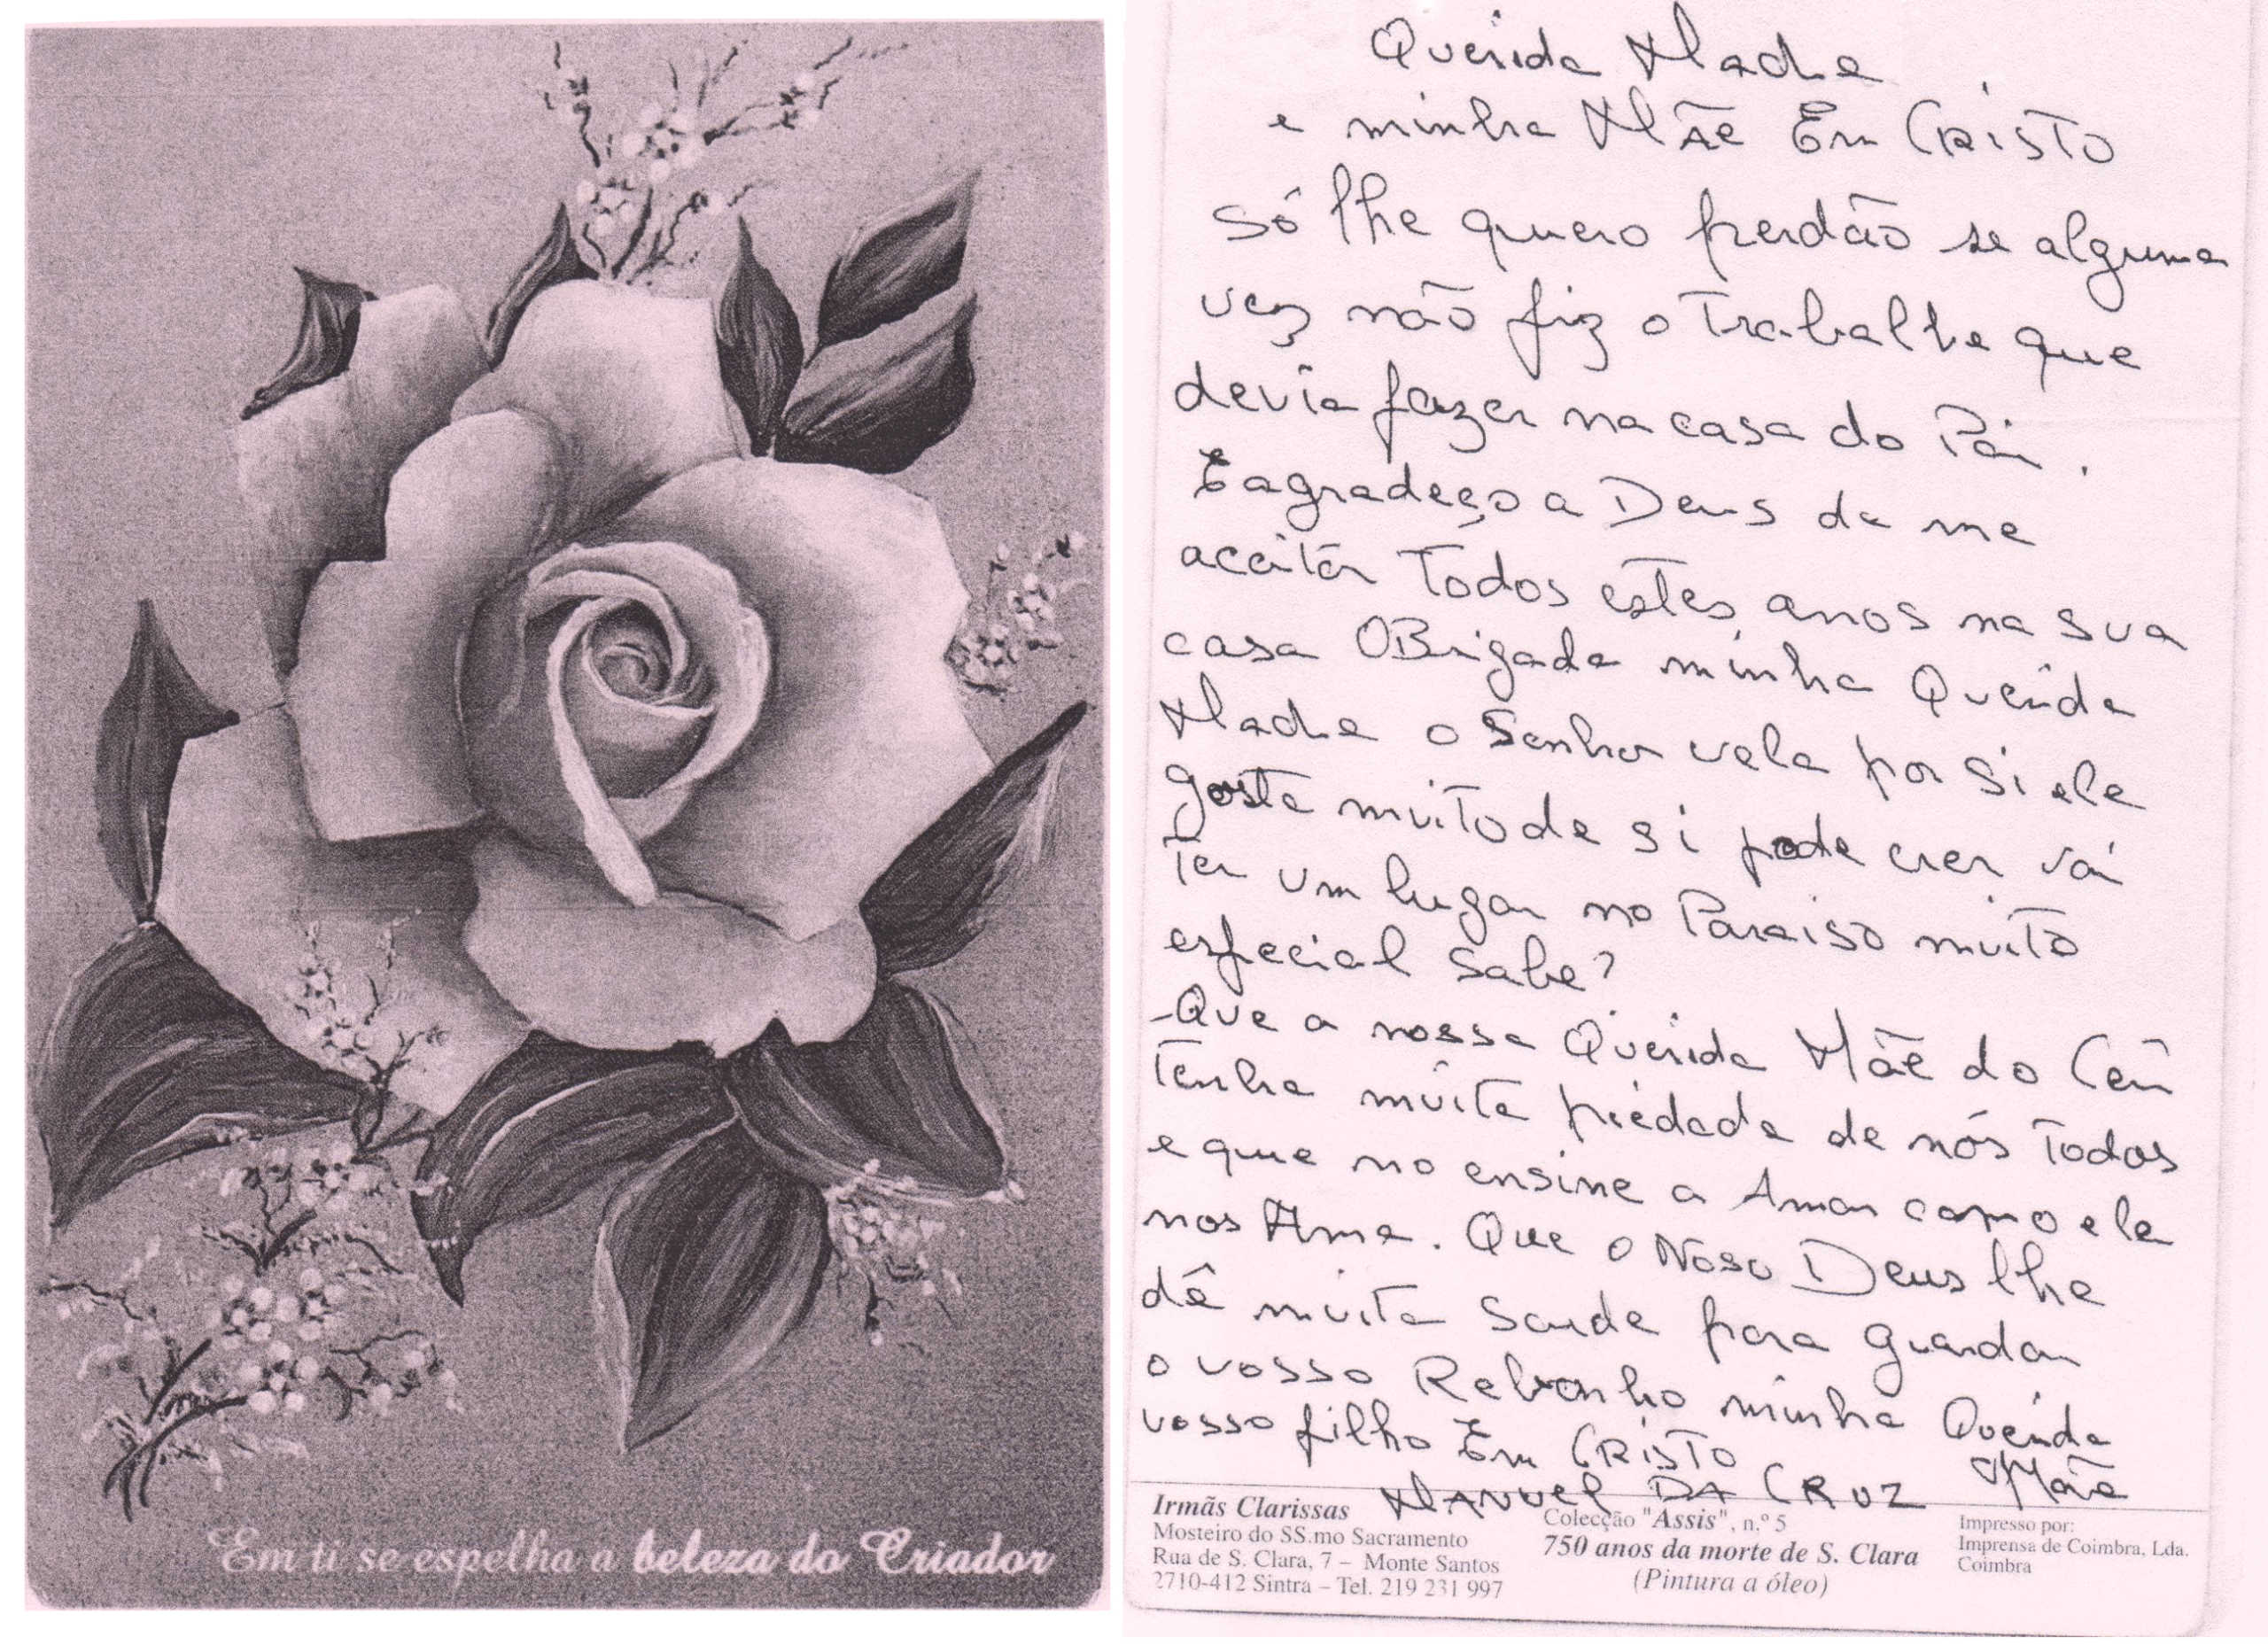 Em ti se espelha a beleza do Criador
Querida Madre
e minha MÃE Em CRISTO
só lhe quero perdão se alguma
vez não fiz o Trabalho que
devia fazer na casa do Pai.
E agradeço a Deus de me
aceitar Todos estes anos na sua
casa OBrigado minha Querida
Madre o Senhor vela por si ele
gosta muito de si pode crer vai
Ter um lugar no Paraiso muito
especial sabe?
-Que a nossa Querida Mãe do Céu
Tenha muita piedade de nós Todos
e que no ensine a Amar como ele
nos Ama. Que o Noso Deus lhe
dê muita saude para guardar
o vosso Rebanho minha Querida
Mãe
vosso filho Em CRISTO
MANUEL DA CRUZ
Irmãs Clarissas
Mosteiro do SS.mo Sacramento
Rua de S. Clara, 7 – Monte Santos
2710-412 Sintra – Tel. 219 231 997
Colecção "Assis", n.º 5
750 anos da morte de S. Clara
(Pintura a óleo)
Impresso por:
Imprensa de Coimbra, Lda.
Coimbra